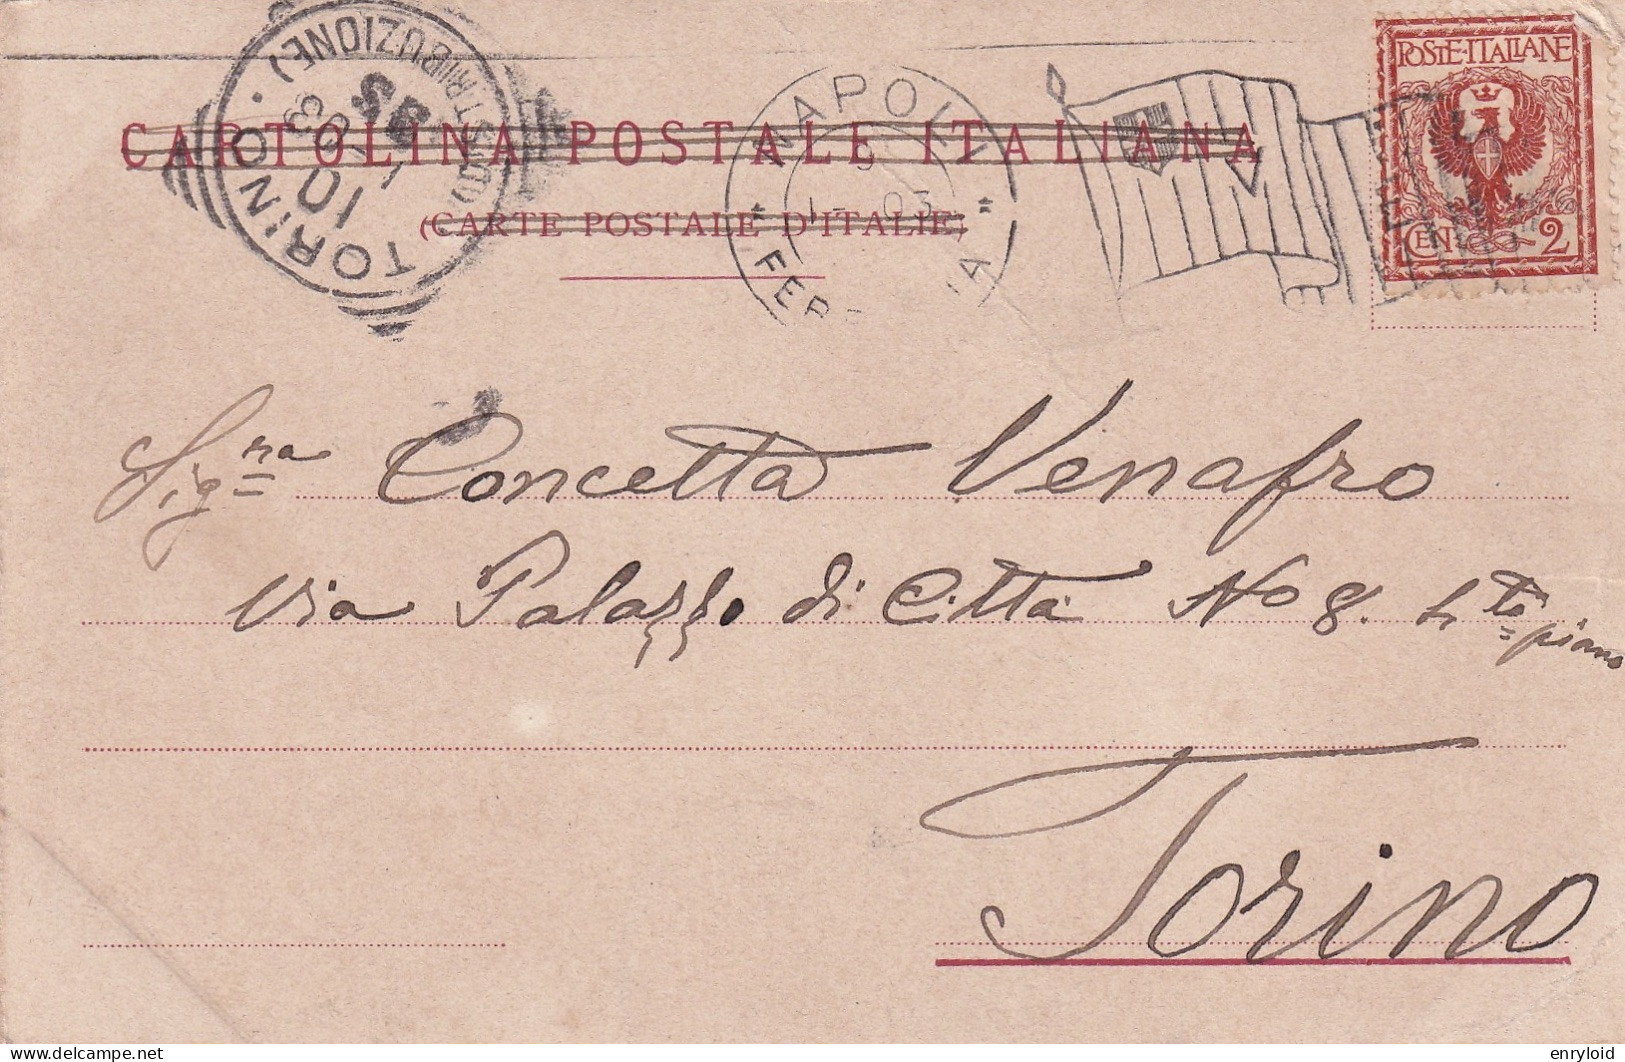 TORINO
(DISTRIBUZIONE)
10
NAPOLI
FERROVIA
1-03
POSTE·ITALIANE
CENT 2
CARTOLINA POSTALE ITALIANA
(CARTE POSTALE D'ITALIE)
Sigra Concetta Venafro
Via Palazzo di Città No 8. 4to piano
Torino
enryloid
delcampe.net